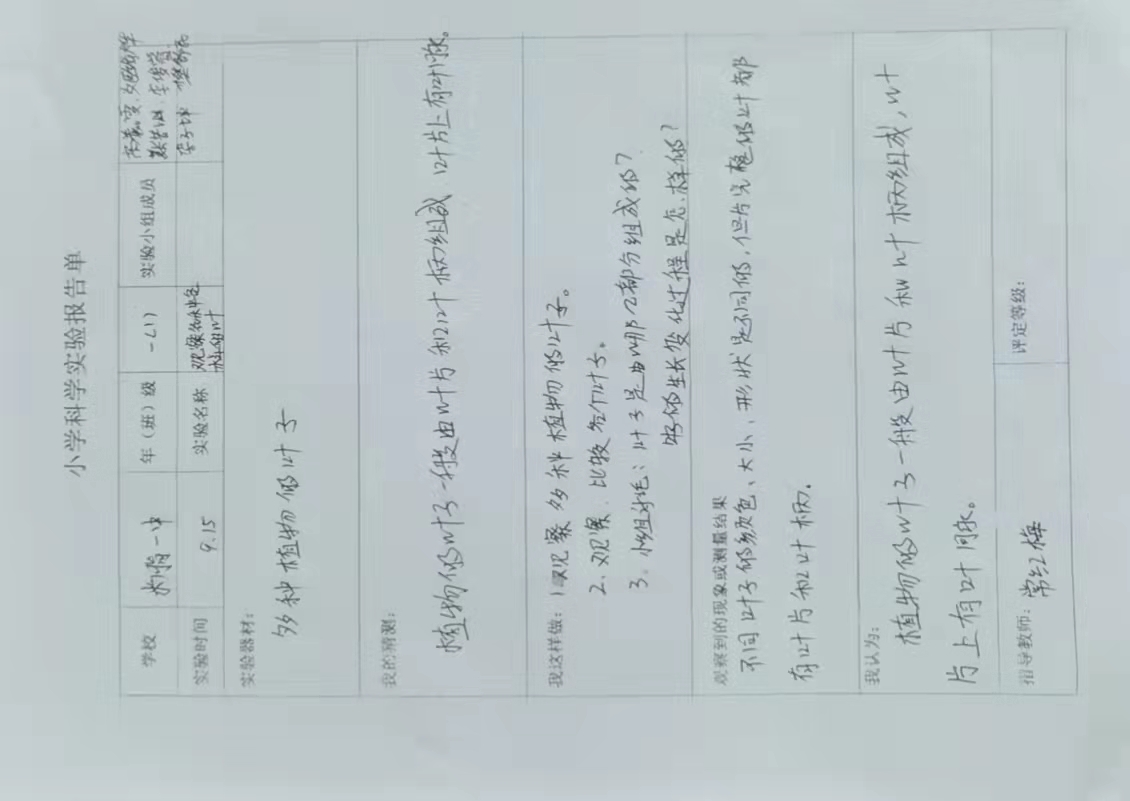 小学科学实验报告单
学校 一中 年（班）级 一(1) 实验小组成员
实验时间 9.15 实验名称 观察各种各
样的叶
实验器材：
多种植物的叶子
我的猜测：
植物的叶子一般由叶片和叶柄组成 叶片上有叶脉。
我这样做：1、观察多种植物的叶子。
2、观察、比较各个叶子。
3、小组讨论：叶子是由哪几部分组成的？
的生长变化过程是怎样的？
观察到的现象或测量结果
不同叶子的颜色、大小、形状是不同的，但片完整的叶都
有叶片和叶柄。
我认为：
植物的叶子一般由叶片和叶柄组成，叶
片上有叶脉。
指导教师：常红梅 评定等级：